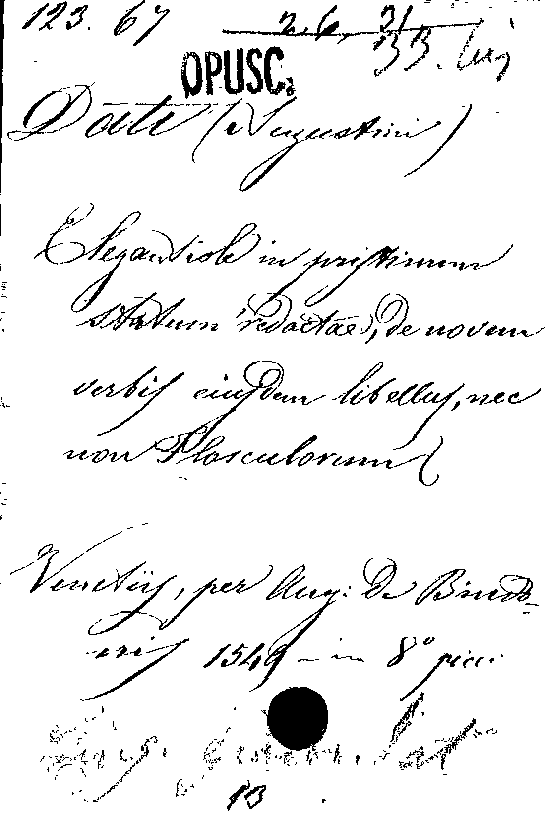 123. 67 2.6.21
33.
OPUSC.
Date (Augustini)
Elegantiole in pristinum
statum redactae, de novem
verbis eiusdem libellus, nec
non Flosculorum
Venetiis, per Aug: De Bindo-
nis 1549 - in 8° picc.
13